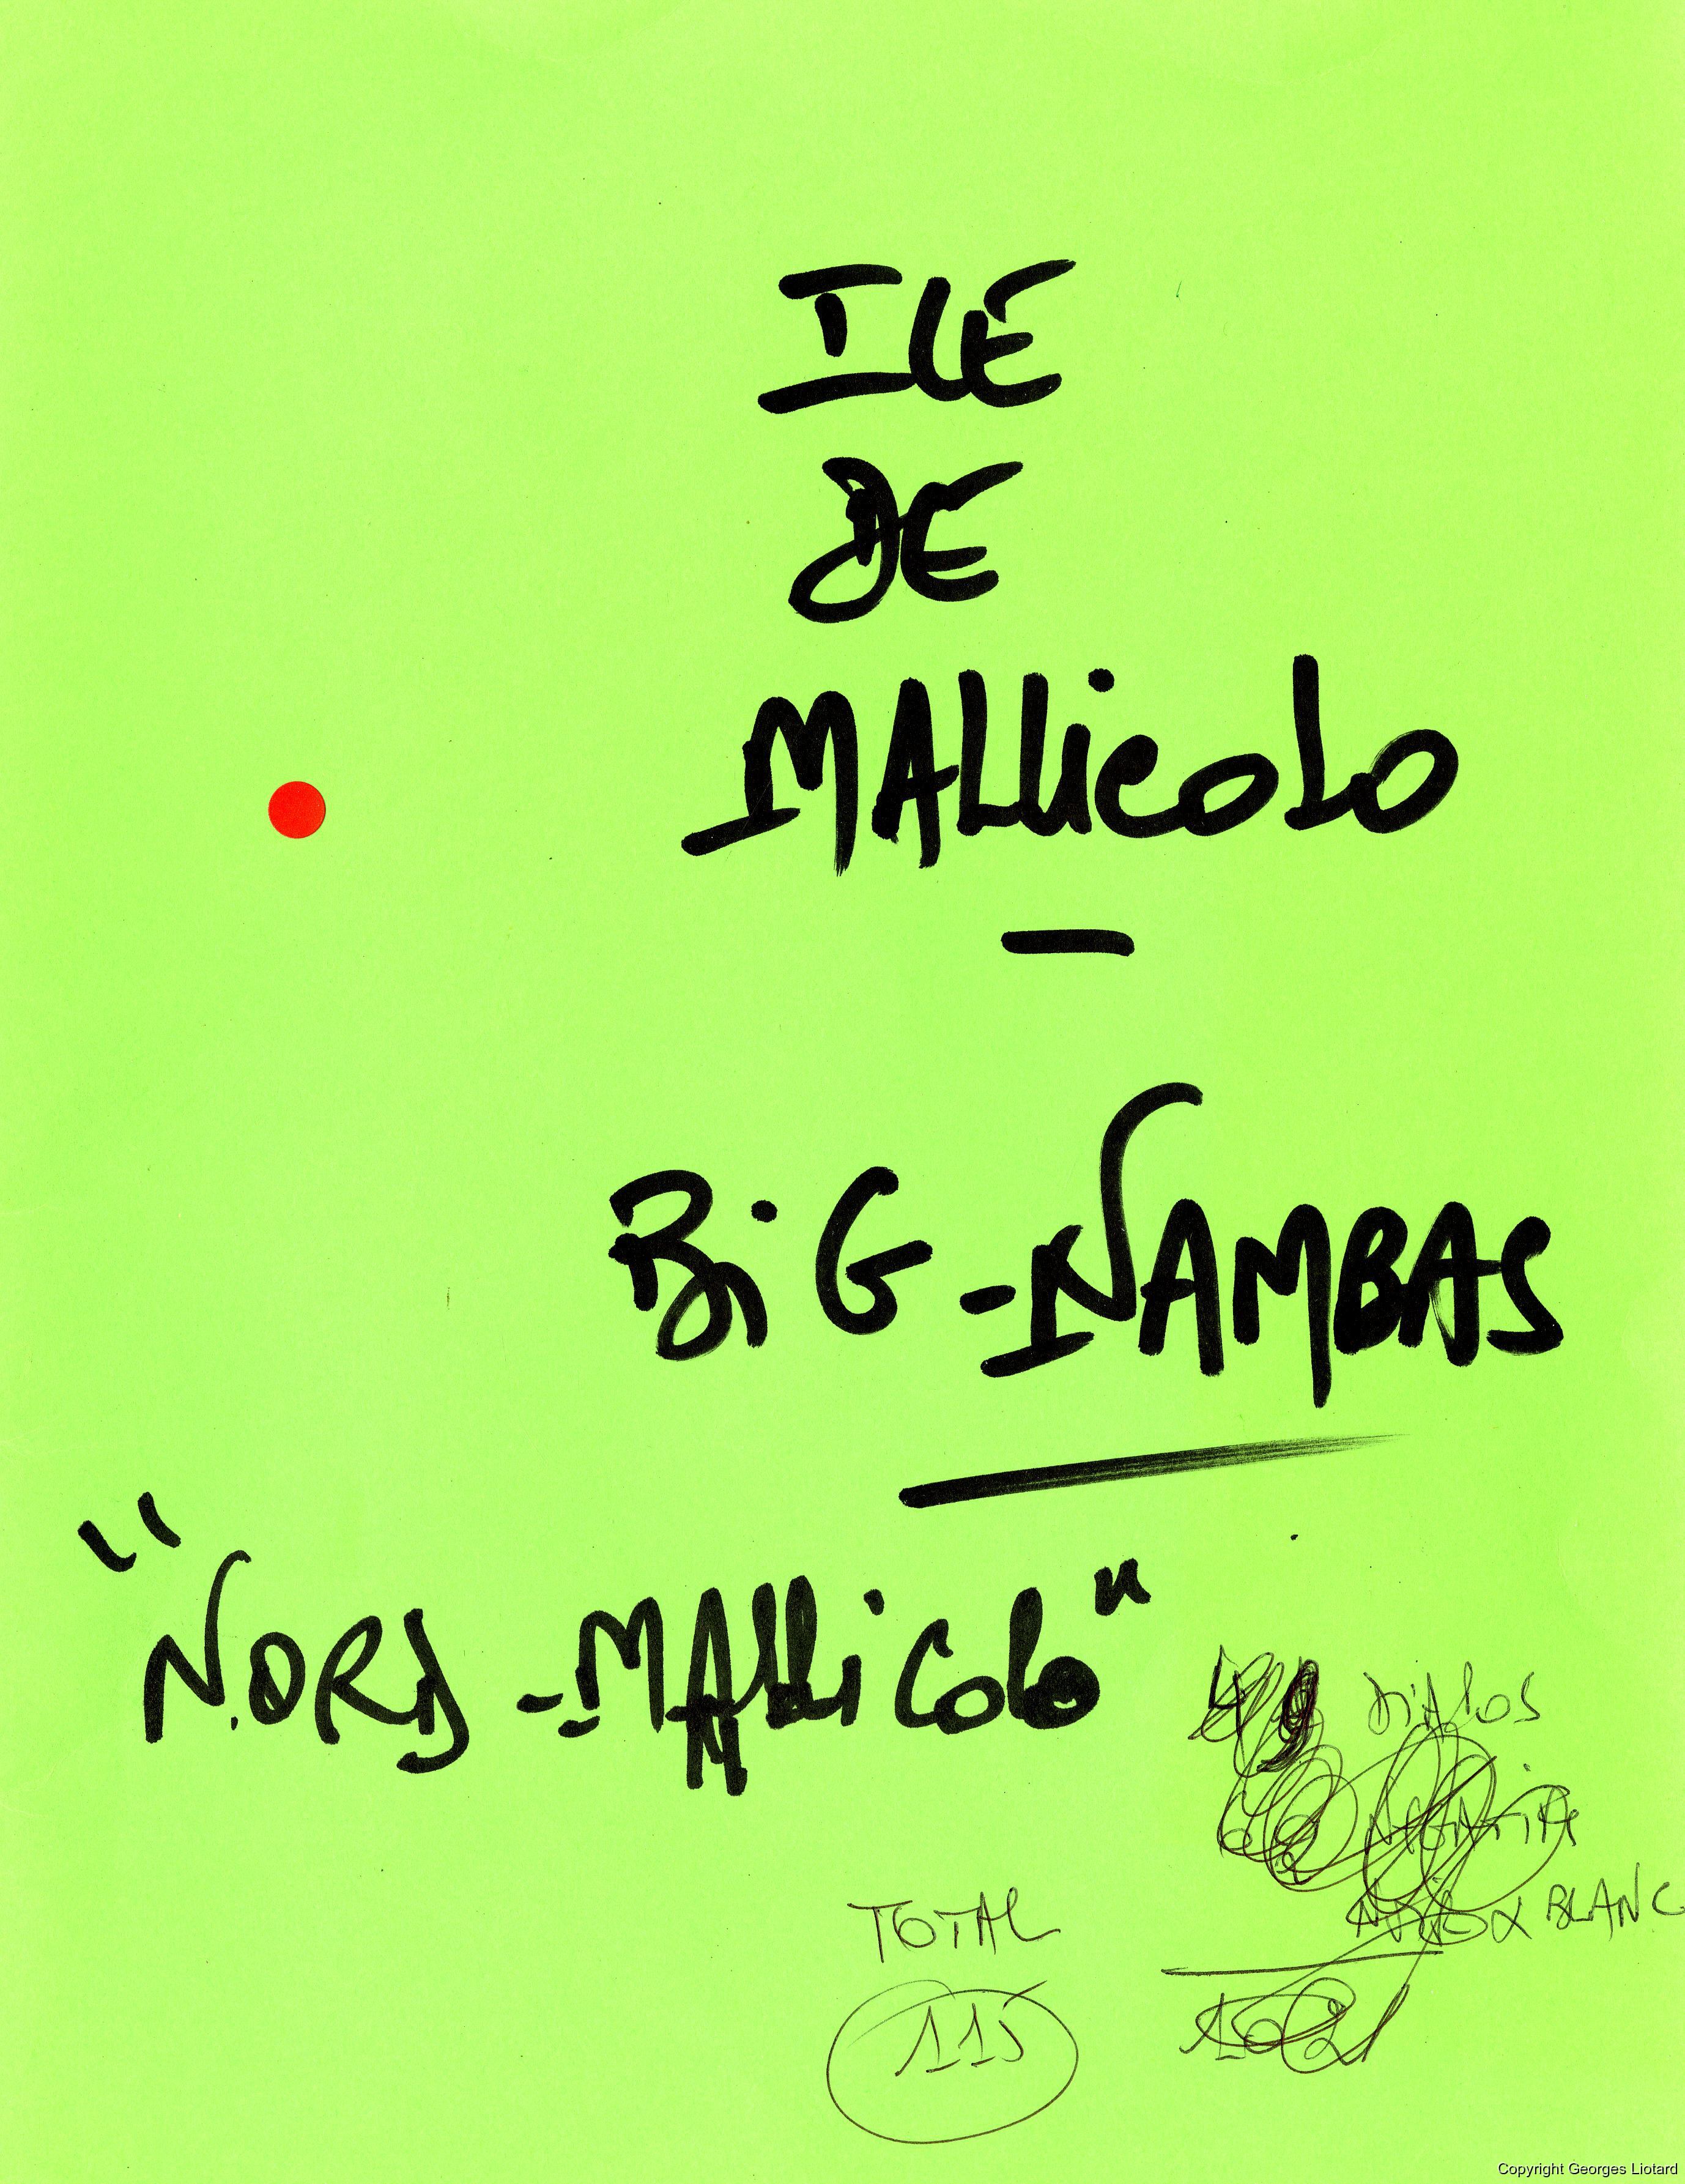 ILE
DE
MALLicoLo
—
BiG-NAMBAS
"NORD-MALLiColo"
49 DiAPOS
NOIR & BLANC
TOTAL
115
Copyright Georges Liotard